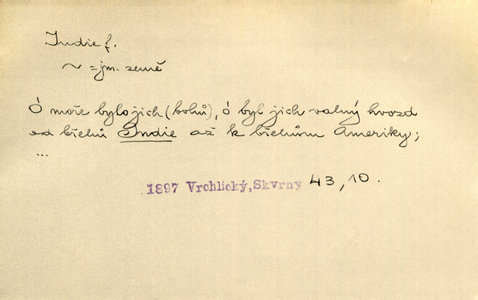 Indie f.
~ = jm. země
Ó moře bylo jich (bohů), ó byl jich valný hvozd
od břehů Indie až k břehům Ameriky;
...
1897 Vrchlický, Skvrny 43, 10.